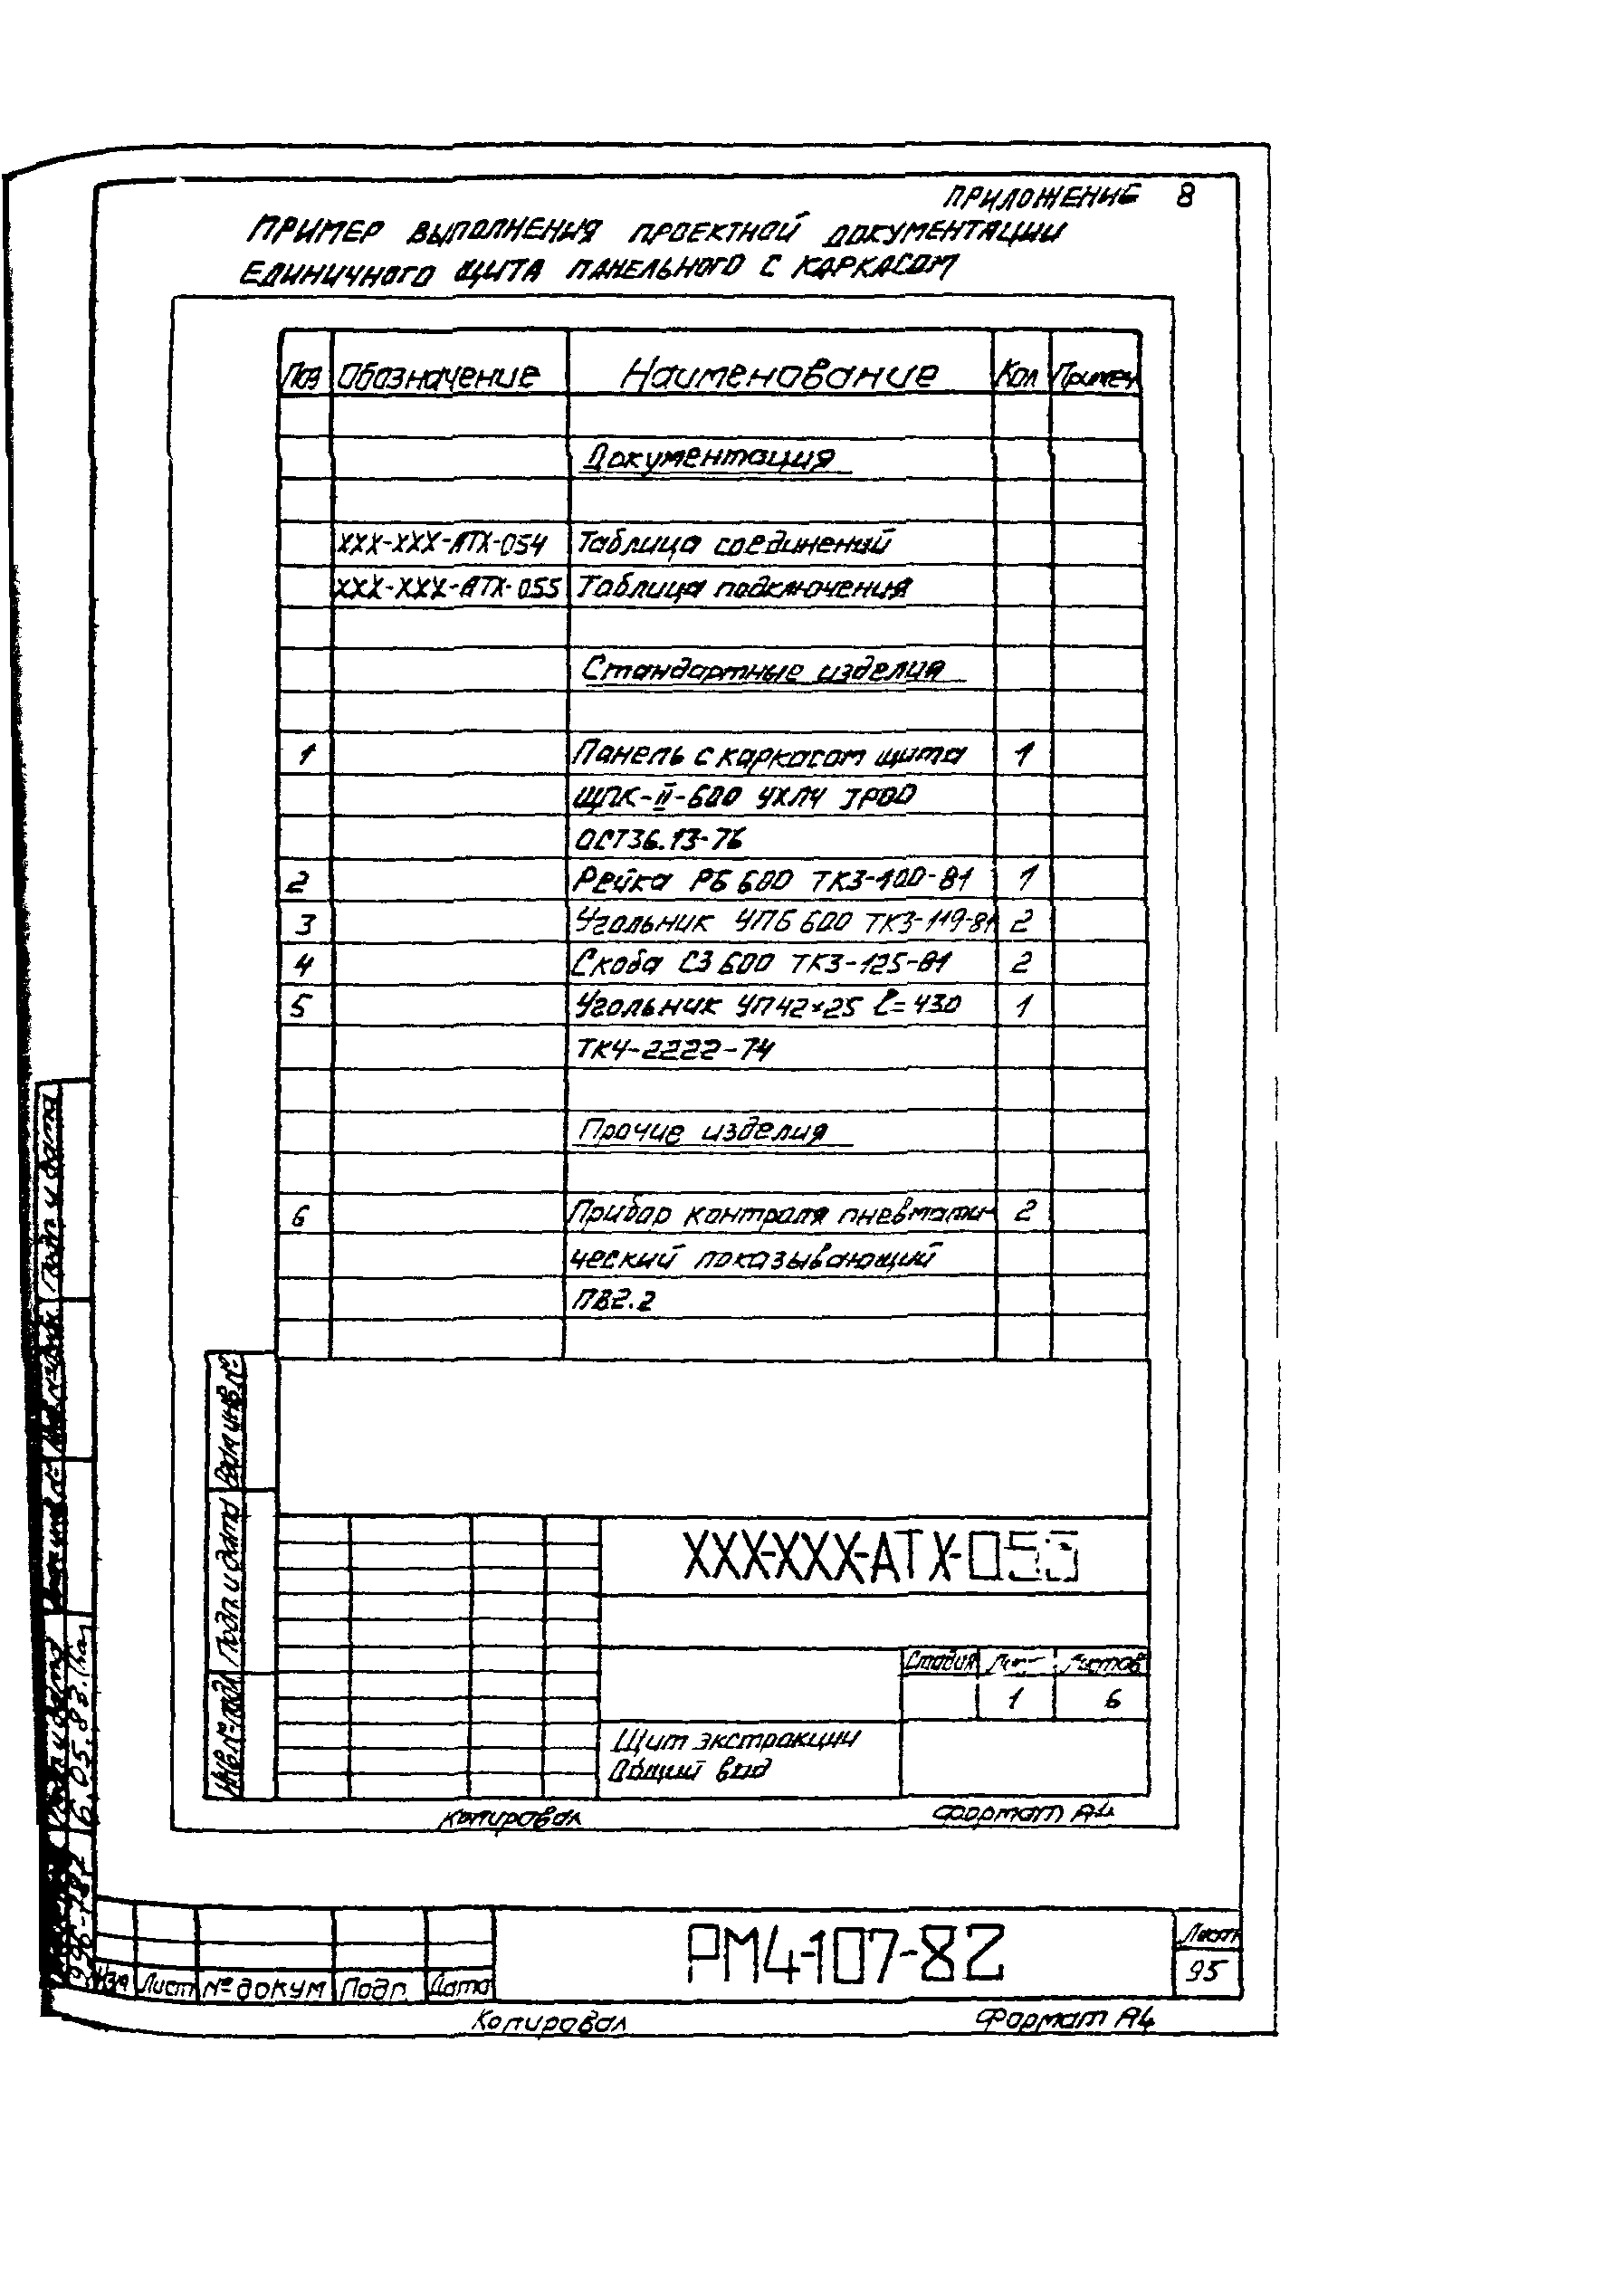 ПРИЛОЖЕНИЕ 8
ПРИМЕР ВЫПОЛНЕНИЯ ПРОЕКТНОЙ ДОКУМЕНТАЦИИ
ЕДИНИЧНОГО ЩИТА ПАНЕЛЬНОГО С КАРКАСОМ
Поз Обозначение Наименование Кол Примеч
Документация
XXX-XXX-АТХ-054 Таблица соединений
XXX-XXX-АТХ-055 Таблица подключения
Стандартные изделия
1 Панель с каркасом щита 1
ЩПК-II-600 УХЛ4 JP00
ОСТ36.13-76
2 Рейка РБ 600 ТК3-100-81 1
3 Угольник УПБ 600 ТК3-119-81 2
4 Скоба С3 600 ТК3-125-81 2
5 Угольник УП42×25 ℓ=430 1
ТК4-2222-74
Прочие изделия
6 Прибор контроля пневмати- 2
ческий показывающий
ПВ2.2
Взам инв.№
Подп. и дата
Инв.№ подл
XXX-XXX-АТХ-053
Стадия Лист Листов
1 6
Щит экстракции
Общий вид
Копировал Формат А4
Подп и дата
6.05.83.
РМ4-107-82
Лист
95
Изм Лист № докум Подп Дата
Копировал Формат А4